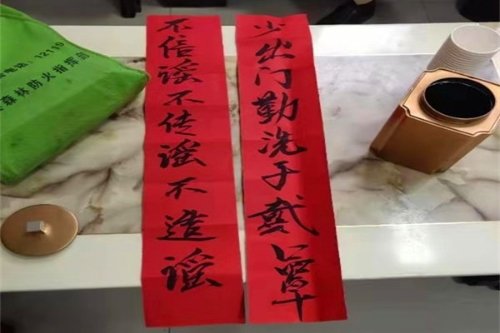 少出门勤洗手戴口罩
不信谣不传谣不造谣
电话：12119
森林防火指挥部